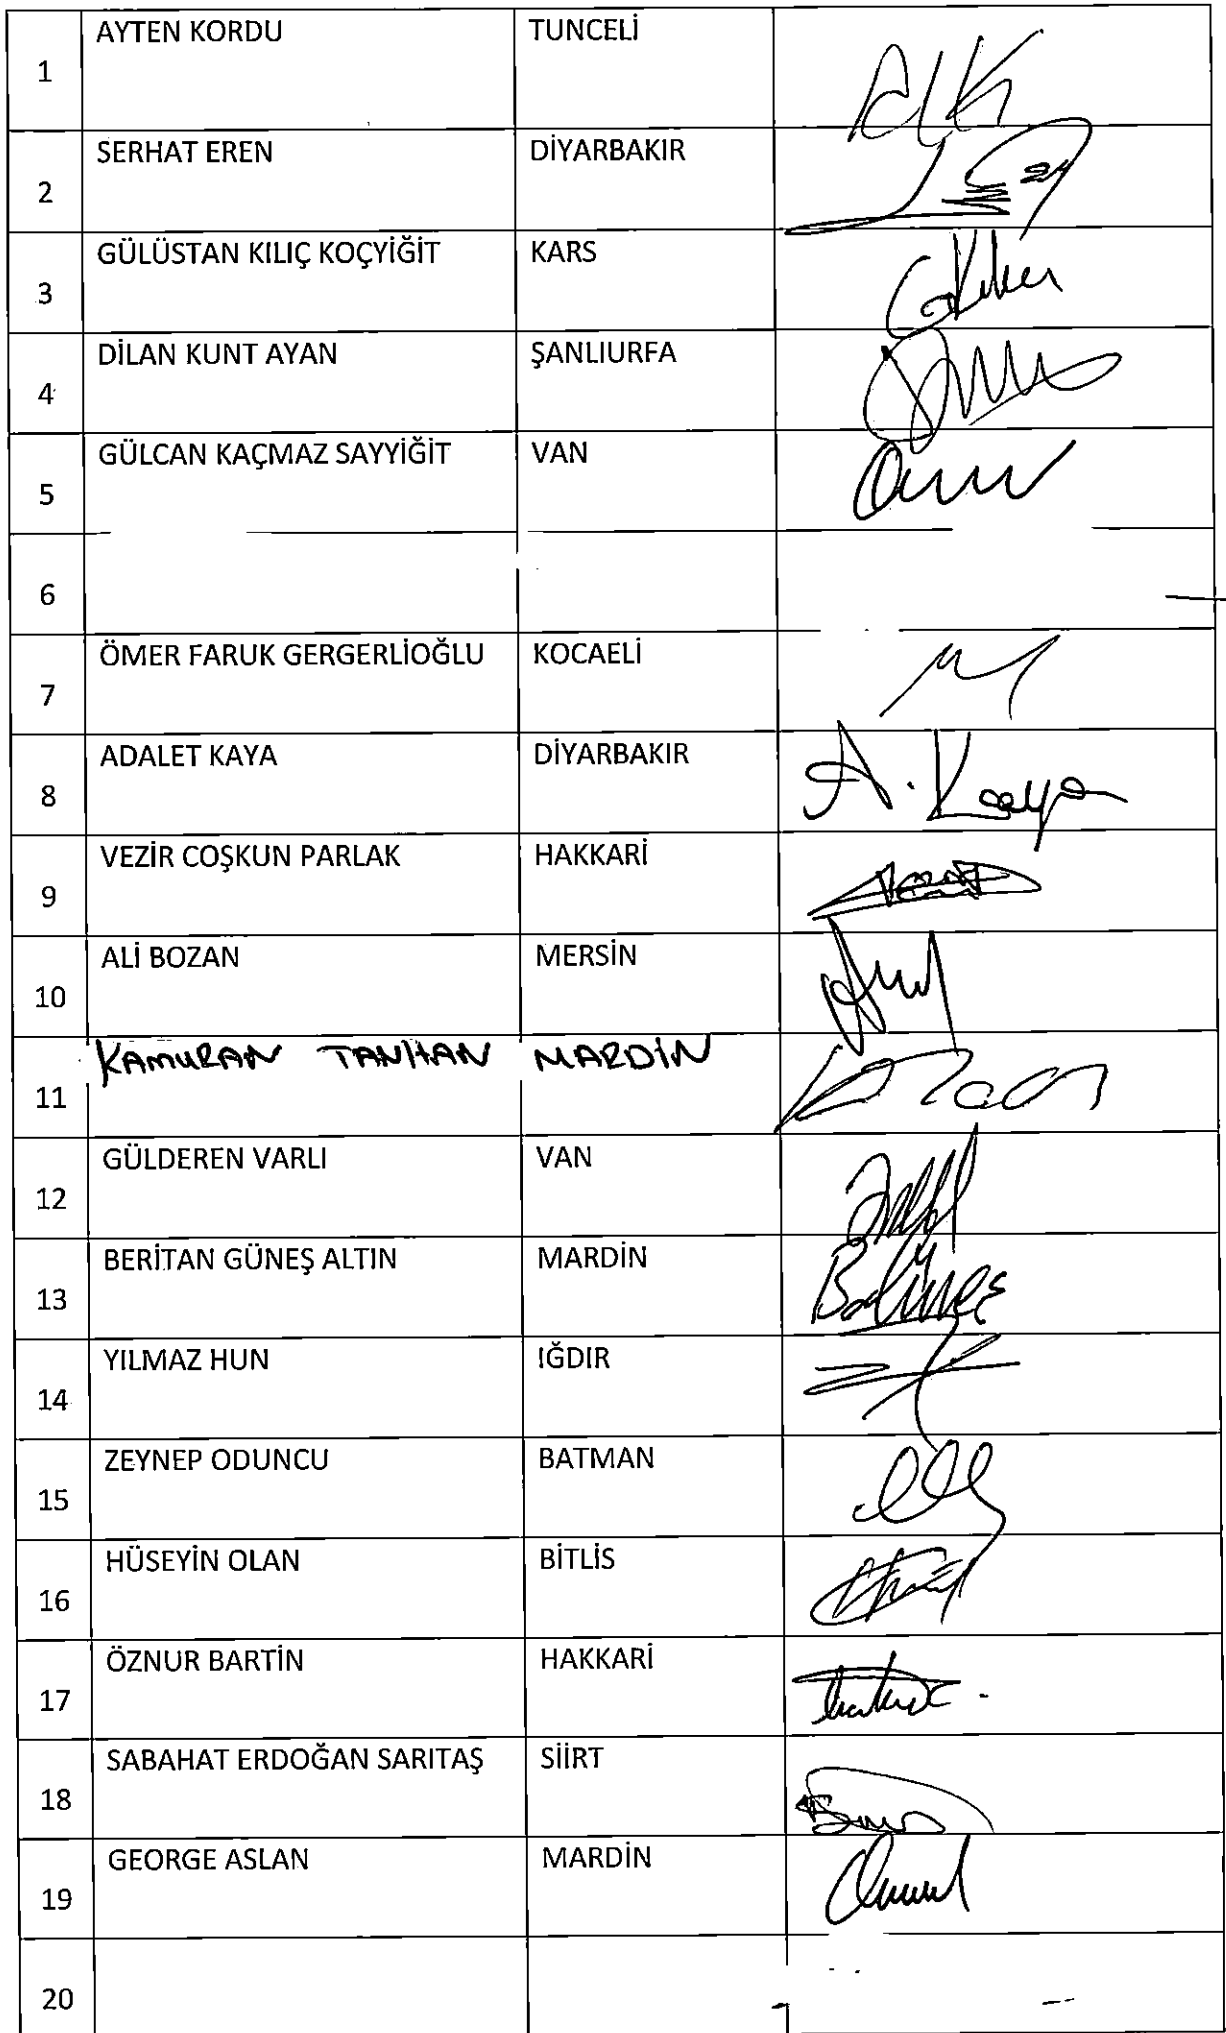 1 AYTEN KORDU TUNCELİ
2 SERHAT EREN DİYARBAKIR
3 GÜLÜSTAN KILIÇ KOÇYİĞİT KARS
4 DİLAN KUNT AYAN ŞANLIURFA
5 GÜLCAN KAÇMAZ SAYYİĞİT VAN
6
7 ÖMER FARUK GERGERLİOĞLU KOCAELİ
8 ADALET KAYA DİYARBAKIR A. Kaya
9 VEZİR COŞKUN PARLAK HAKKARİ
10 ALİ BOZAN MERSİN
11 KAMURAN TANHAN MARDİN
12 GÜLDEREN VARLI VAN
13 BERİTAN GÜNEŞ ALTIN MARDİN
14 YILMAZ HUN IĞDIR
15 ZEYNEP ODUNCU BATMAN
16 HÜSEYİN OLAN BİTLİS
17 ÖZNUR BARTİN HAKKARİ
18 SABAHAT ERDOĞAN SARITAŞ SİİRT
19 GEORGE ASLAN MARDİN
20